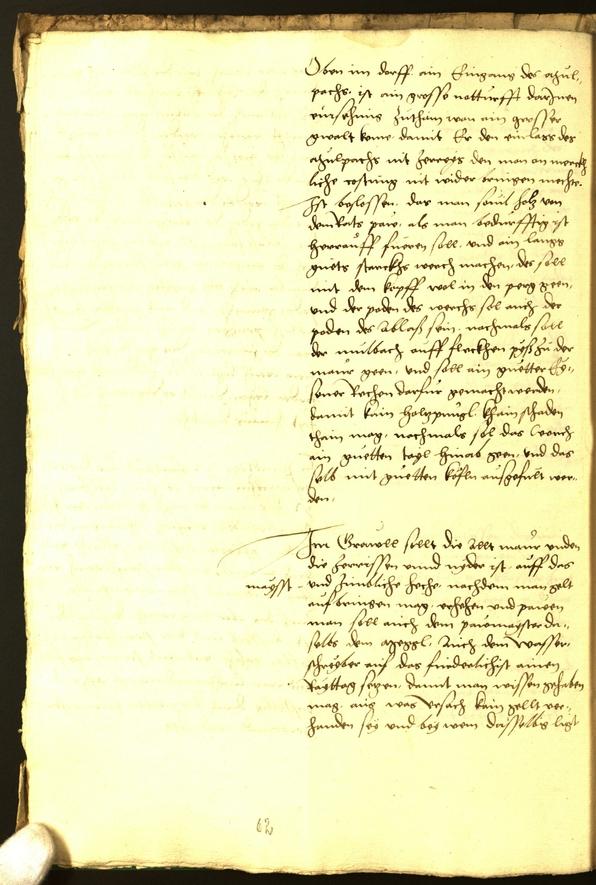 Oben im dorff ain Eingang des mül-
pachs, ist ain grosse notturfft darJnnen
fürsehung zuthain wan ain grosser
gwalt kome damit Er den einlass des
mülpachs nit zerreis den man on merckh
liche costung nit wider bringen mechte.
Ist beslossen, das man souil holz von
dem Rats paw, als man bedürfftig ist
herauff fueren soll, und ain langs
guets starckhs werch machen, des soll
mit dem kopff wol in den perg geen,
und der poden des werchs sol auch der
poden des Ablass sein, nachmals soll
der mülbach auff fleckhen zu der
maur geen, und soll ain guetter Ey-
sener Rechen darfür gemacht werden,
damit kain holz khain schaden
thain mag, nachmals sol das werch
ain guetten tayl hinab geen, und das
selb mit guetten köfln ausgefült wer-
den,

Im Grawell sollt die Allt maur unden
die zerrissen unnd nyder ist auff das
maysst und zimbliche heche nachdem man gelt
aufbringen mag, erhehen und pawen
man soll auch dem pawmayster da-
selbs dem, Auch dem Wasser-
schreyber auf das fürderlichist ainen
Raytag sezen, damit man wissen gehaben
mag, aus was ursach kain gellt ver-
handen sey und bey wem dasselbig ligt
62